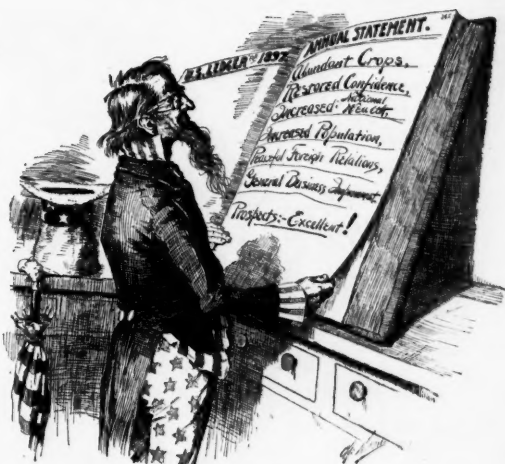 U.S. LEDGER 1897
ANNUAL STATEMENT.
Abundant Crops,
Restored Confidence,
Increased National
Wealth,
Increased Population,
Peaceful Foreign Relations,
General Business Improvement
Prospects:-Excellent!